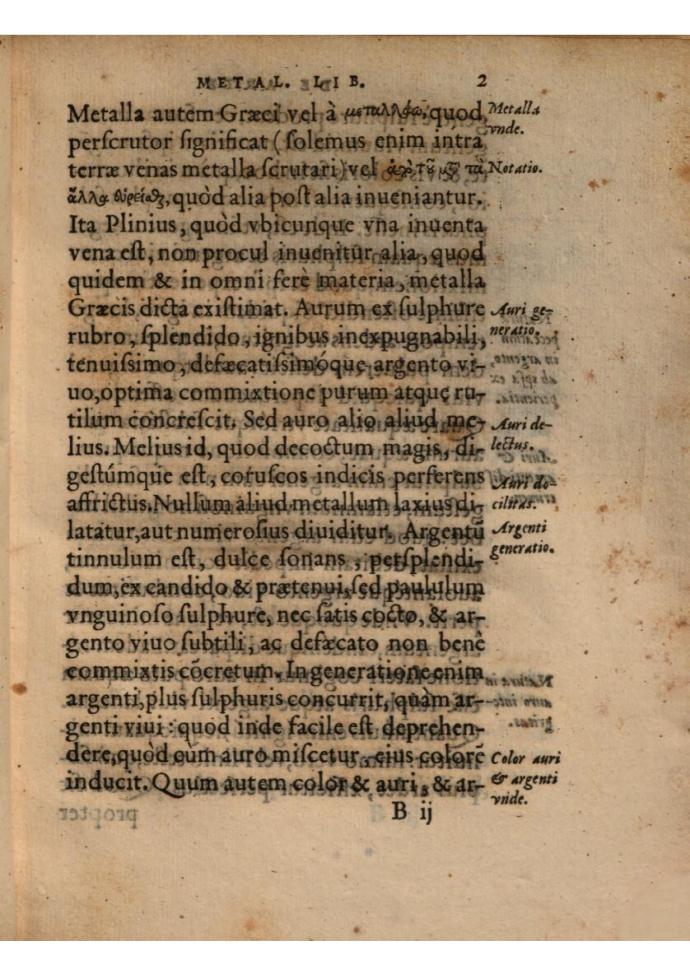 METAL. LIB. 2
Metalla autem Græci vel à μεταλλάω, quod
perſcrutor ſignificat (ſolemus enim intra
terræ venas metalla ſcrutari) vel ἀπὸ τοῦ μετ τὰ
ἄλλα εὑρεῖσθαι, quòd alia poſt alia inueniantur.
Ita Plinius, quòd vbicunque vna inuenta
vena eſt, non procul inuenitur alia, quod
quidem & in omni ferè materia, metalla
Græcis dicta exiſtimat. Aurum ex ſulphure
rubro, ſplendido, ignibus inexpugnabili,
tenuiſsimo, defæcatiſsimóque argento vi-
uo, optima commixtione purum atque ru-
tilum concreſcit. Sed auro alio aliud me-
lius. Melius id, quod decoctum magis, di-
geſtúmque eſt, coruſcos indicis perferens
affrictus. Nullum aliud metallum laxius di-
latatur, aut numeroſius diuiditur. Argentū
tinnulum eſt, dulce ſonans, perſplendi-
dum, ex candido & prætenui, ſed paululum
vnguinoſo ſulphure, nec ſatis cocto, & ar-
gento viuo ſubtili, ac defæcato non benè
commixtis cōcretum. In generatione enim
argenti, plus ſulphuris concurrit, quàm ar-
genti viui: quod inde facile eſt deprehen-
dere, quòd cùm auro miſcetur, eius colorē
inducit. Quum autem color & auri, & ar-
B ij
Metalla
vnde.
Notatio.
Auri ge-
neratio.
Auri de-
lectus.
Auri do-
cilitas.
Argenti
generatio.
Color auri
& argenti
vnde.